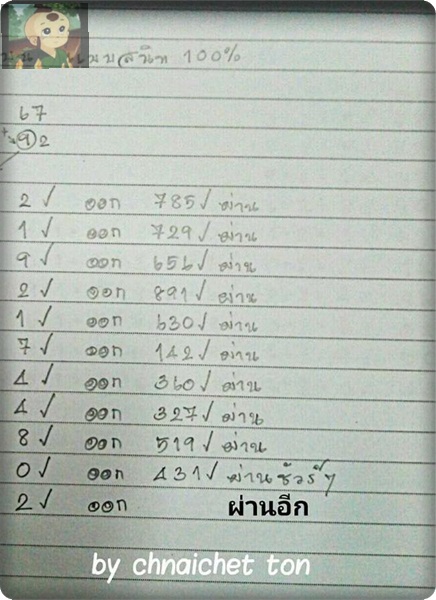 แบบสนิท 100%
67
92
2 ✓ ออก 785✓ ผ่าน
1 ✓ ออก 729✓ ผ่าน
9 ✓ ออก 656✓ ผ่าน
2 ✓ ออก 891✓ ผ่าน
1 ✓ ออก 630✓ ผ่าน
7 ✓ ออก 142✓ ผ่าน
4 ✓ ออก 360✓ ผ่าน
4 ✓ ออก 327✓ ผ่าน
8 ✓ ออก 519✓ ผ่าน
0 ✓ ออก 431✓ ผ่านชัวร์ๆ
2 ✓ ออก ผ่านอีก
by chnaichet ton